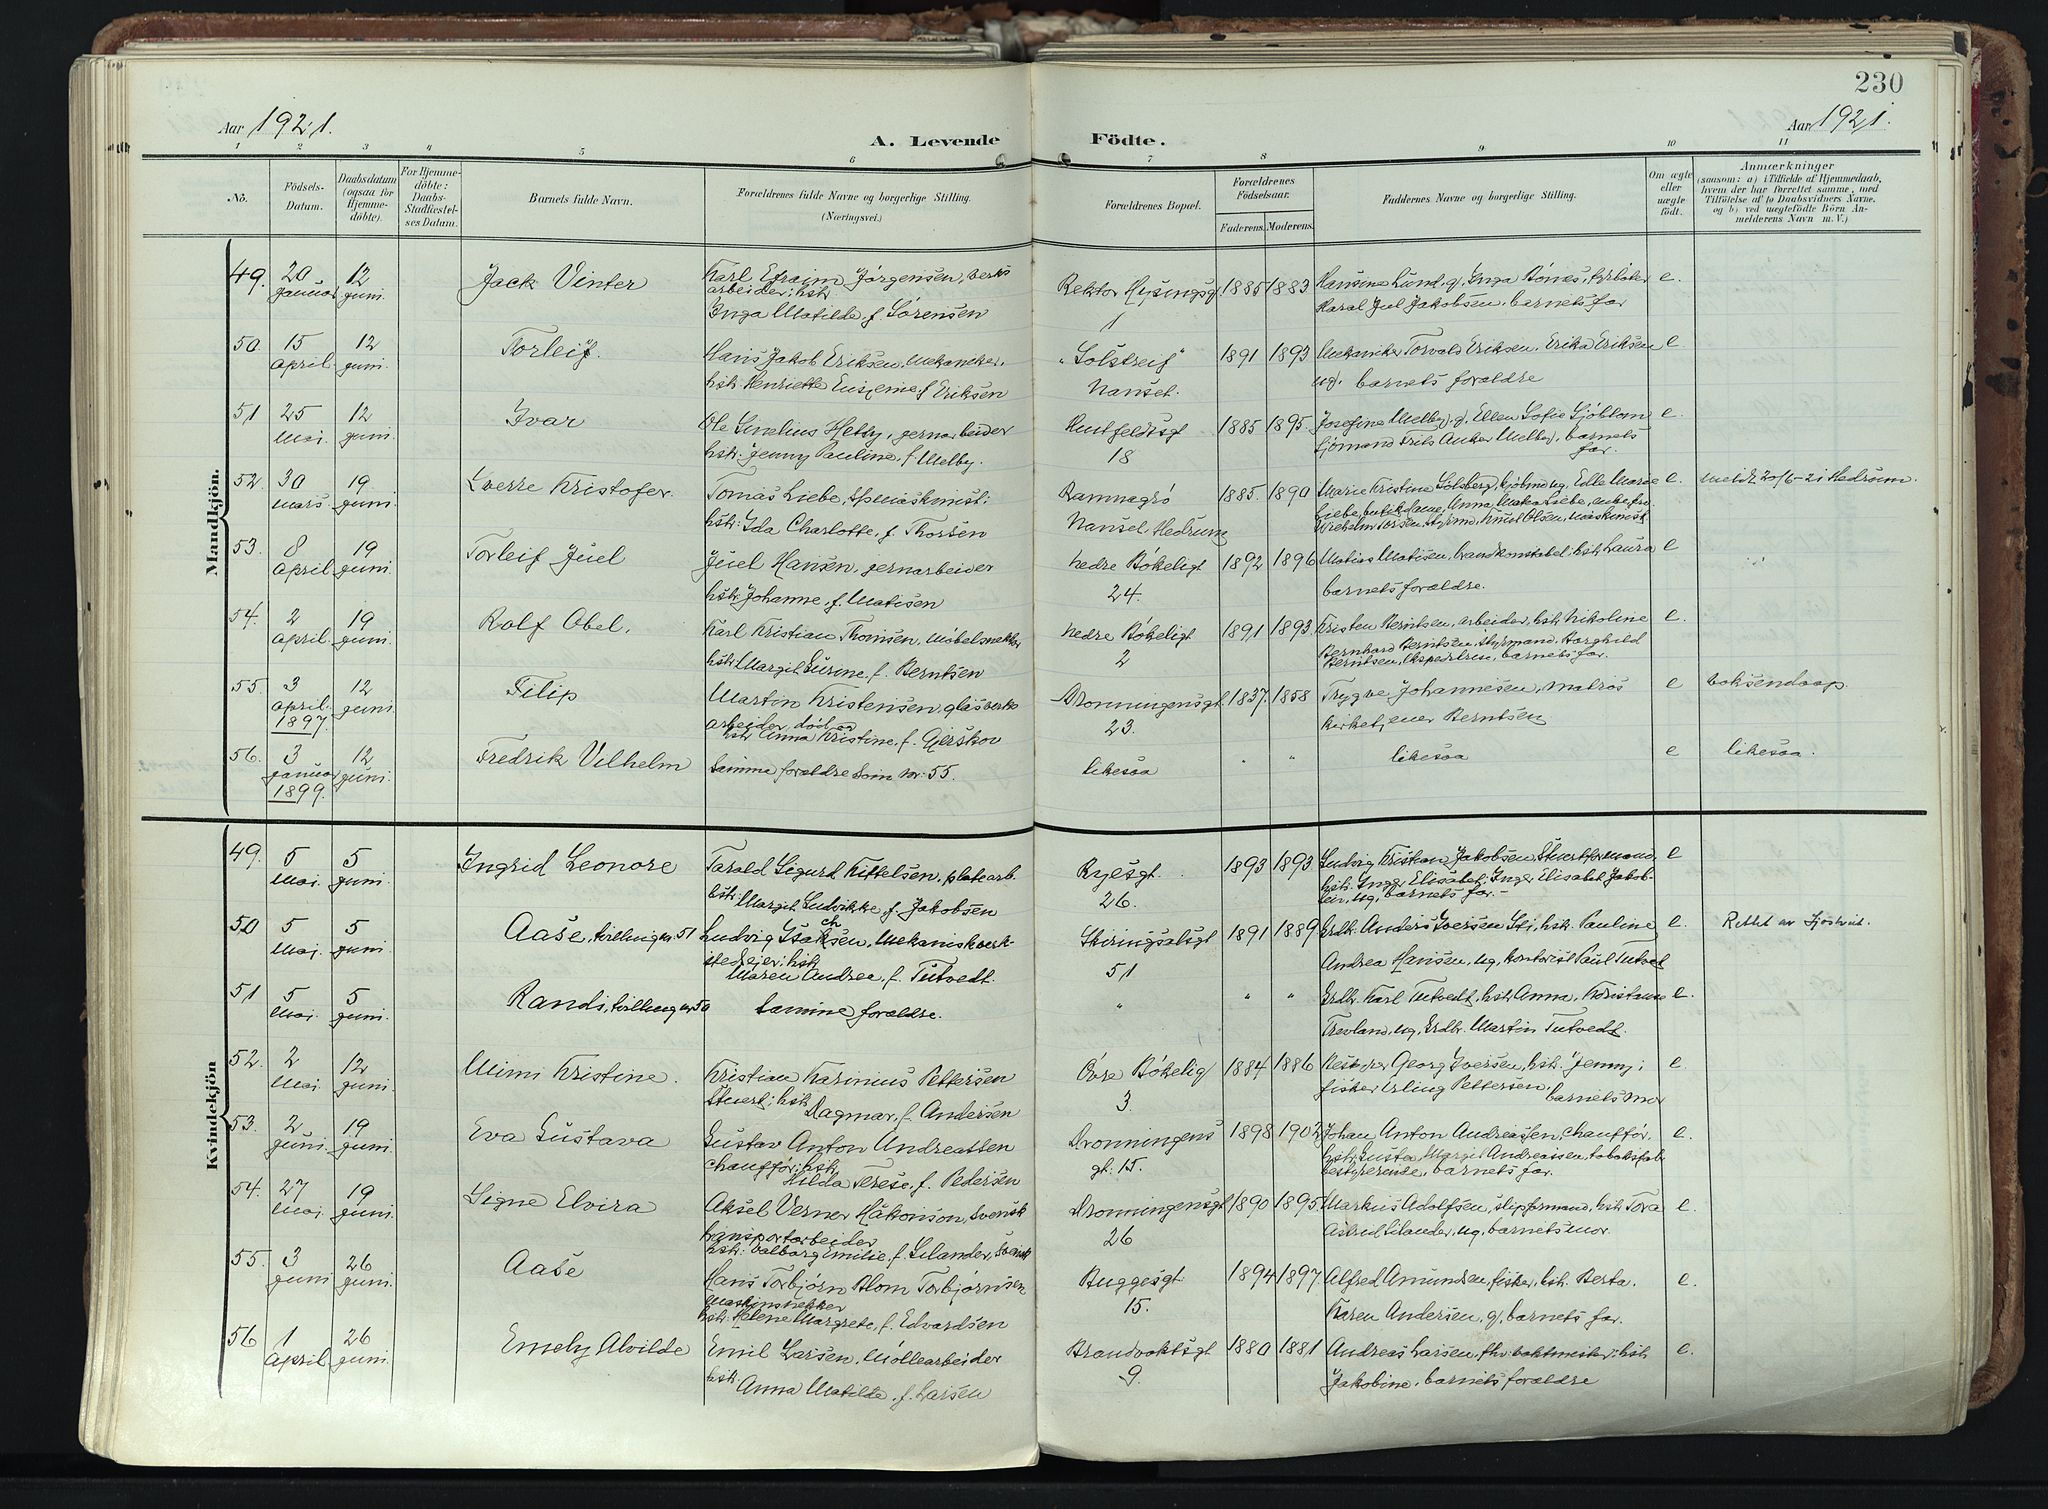 230
Aar 1921.
A. Levende Födte.
Aar 1921.
1 2 3 4 5 6 7 8 9 10 11
No.
Födsels-Datum.
Daabsdatum (ogsaa for Hjemme-döbte).
For Hjemme-döbte: Daabs-Stadfæstel-ses Datum.
Barnets fulde Navn.
Forældrenes fulde Navne og borgerlige Stilling.
(Næringsvei.)
Forældrenes Bopæl.
Forældrenes Födselsaar.
Faderens. Moderens.
Faddernes Navne og borgerlige Stilling.
Om ægte eller uægte födt.
Anmærkninger
(saasom: a) i Tilfælde af Hjemmedaab, hvem der har forrettet samme, med Tilföielse af to Daabsvidners Navne, og b) ved uægtefödte Börn An-melderens Navn m. V.)
Mandkjön.
49. 20 januar 12 juni. Jack Vinter Karl Efraim Jørgensen, verks
arbeider; hst
Inga Matilde, f. Sørensen
Rektor Hysingsg 1 1885 1883 Hansine Lund, g, Inga Bónes,
Haral Jul Jakobsen, barnets far e.
50. 15 april. 12 juni. Torleif. Hans Jakob Eriksen, mekaniker,
hst. Henriette Eugenie, f Eriksen
"Solstreif" Nanset. 1891 1893 Mekaniker Torvald Eriksen, Erika Eriksen
ug. barnets forældre e.
51 25 Mai. 12 juni. Ivar Ole Sinelius Melby, jernarbeider
hst: Jenny Pauline, f Melby.
Huitfeldtsgt 18 1885 1895. Josefine Melby, g, Ellen Sofie Sjöblom
sjömand Frits Anker Melby, barnets
far. e.
52. 30 mars 19 juni. Sverre Kristofer. Tomas Liebe, maskinist;
hst: Ida Charlotte, f Thorsen
Ramnagrø Nanset, Hedrum 1885. 1890 Marie Kristine Solberg, ug, Edle Marie
Liebe, butikdame, Anna Liebe,
Torsen, styrmd, Knut Olsen, maskinist e meldt 20/6-21 Hedrum.
53. 8 april 19 juni. Torleif Juel Juel Hansen, jernarbeider
hst: Johanne, f. Matisen
nedre Bökeligt 24. 1892 1896 Matias Matisen, brandkonstabel, hst Laura
barnets forældre. e
54. 2 april 19 juni. Rolf Obel. Karl Kristian Thomsen, möbelsnekker
hst: Margit Surine, f. Berntsen
nedre Bökeligt 2 1891 1893 Kristen Berntsen, arbeider, hst Nikoline
Bernhard Berntsen, styrmand, Borghild
Berntsen, ekspeditrise, barnets far. e.
55. 3 april. 1897. 12 juni. Filip Martin Kristensen, glasverks
arbeider, död og
hst Anna Kristine, f. Gerskov
Dronningensgt 23. 1837. 1858 Trygve Johannesen, matros
kirket. ener Berntsen e voksendaap.
56. 3 januar 1899. 12 juni. Fredrik Vilhelm Samme forældre som nr. 55.
likesaa " " likesaa e likesaa.
Kvindekjön
49. 5 Mai. 5 juni. Ingrid Leonore Tarald Sigurd Kittelsen, platearb.
hst: Margit Ludvikke, f. Jakobsen
Ryesgt. 26. 1893 1893 Ludvig Kristian Jakobsen, Stuertformand,
hst. Inger Elisabet; Inger Elisabet Jakob-
sen, ug, barnets far. - e
50 5 Mai. 5 juni. Aase, tvilling nr. 51 Ludvig Isaksen, mekanisk verk-
stedeier; hst
Maren Andrea, f. Tutvedt.
Skiringsalsgt 51 1891 1889 Grdbr. Anders Iversen Sti, hst. Pauline
Andrea Hansen, ug, kontorist Paul Tutvet e. Rettet av Sjostvet.
51 5 Mai. 5 juni. Randi, tvilling nr 50 samme forældre.
" " " Grdbr. Karl Tutvedt, hst Anna, Kristiane
Trevland, ug, Grdbr. Martin Tutvedt. e.
52. 2 Mai. 12 juni. Mimi Kristine. Kristian Karinius Pettersen
Stuert; hst
Dagmar, f. Andersen
Övre Bökelig 3. 1884 1886 Georg Iversen, hst. Jenny;
fisker Erling Pettersen.
barnets mor e.
53. 2 juni. 19 juni. Eva Gustava Gustav Anton Andreassen
chauffør; hst.
Hilda Terese, f. Pedersen
Dronningens gt. 15. 1898 1902 Johan Anton Andreassen, chauffør,
hst. Gusta, Margit Andreassen, tobaksfab.
bestyrerende, barnets far. e.
54. 27 Mai. 19 juni. Signe Elvira Aksel Verner Håkonson, svensk
transportarbeider
hst: Valborg Emilie, f. Selander, svensk
Dronningensgt 26 1890 1895. Markus Adolfsen, slipformand, hst. Tora
Astrid Selander, ug, barnets mor. e.
55. 3 juni 26 juni. Aase Hans Torbjørn Blom Torbjørnsen
Maskinsnekker
hst. Helene Margrete, f. Edvardsen
Buggesgt 15. 1894 1897. Alfred Amundsen, fisker, hst. Berta.
Karen Andersen, g, barnets far. e.
56 1 april 26 juni. Emely Alvilde Emil Larsen, möllearbeider
hst.
Anna Matilde, f. Larsen
Brandvaktsgt 9. 1880 1881 Andreas Larsen, fhv. vaktmester; hst
Jakobine, barnets forældre e.